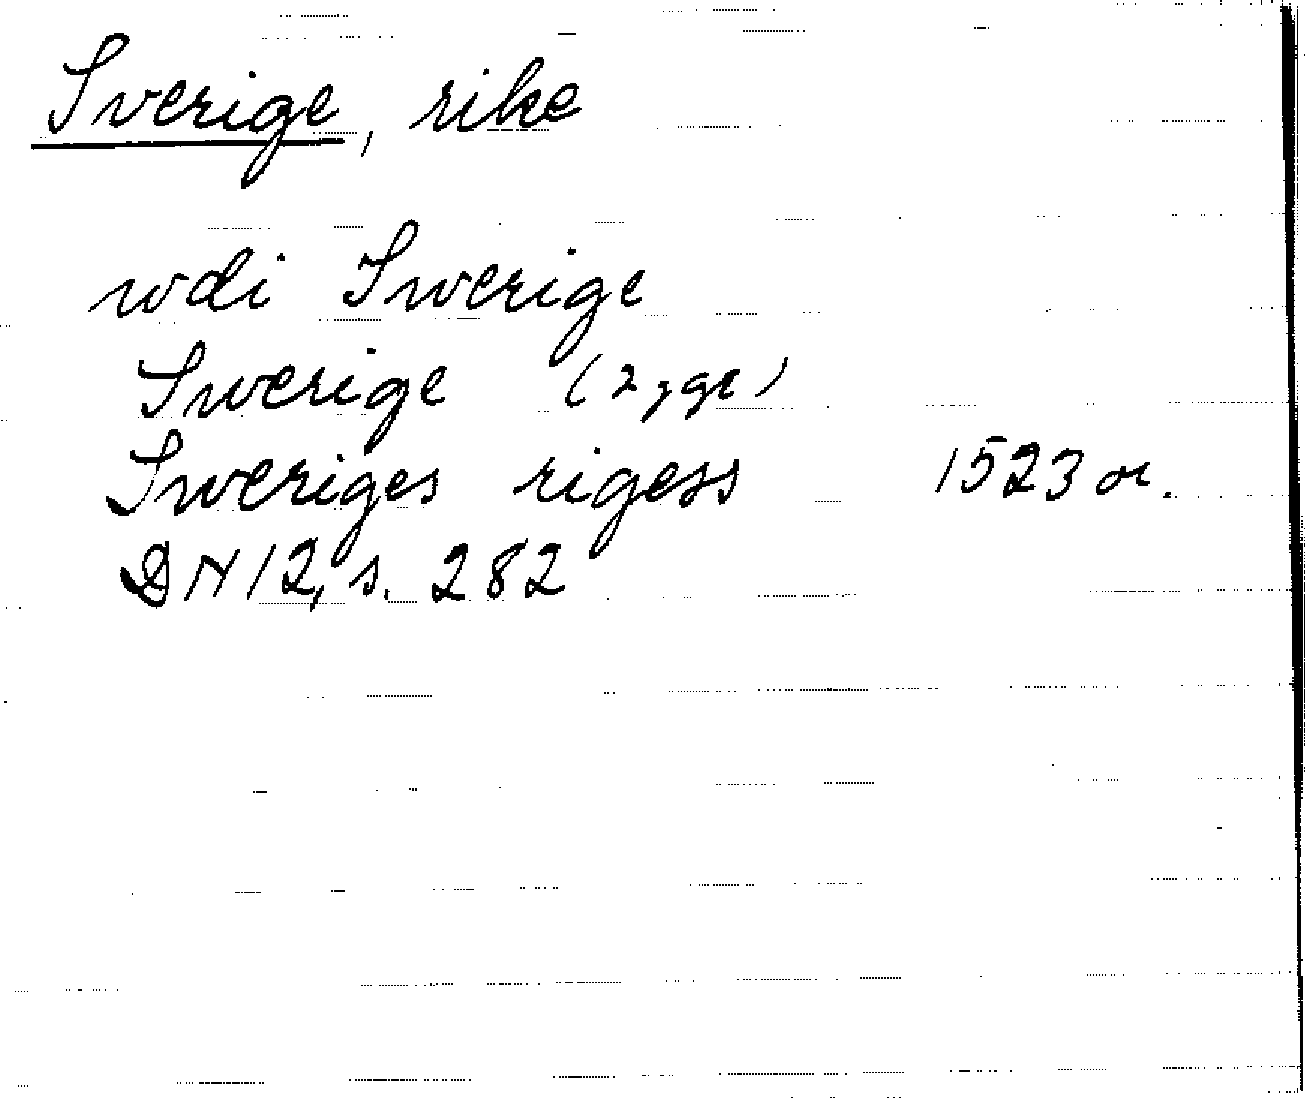 Sverige, rike
wdi Swerige
Swerige (2 ggr)
Sweriges rigess 1523 or.
DN 12, s. 282